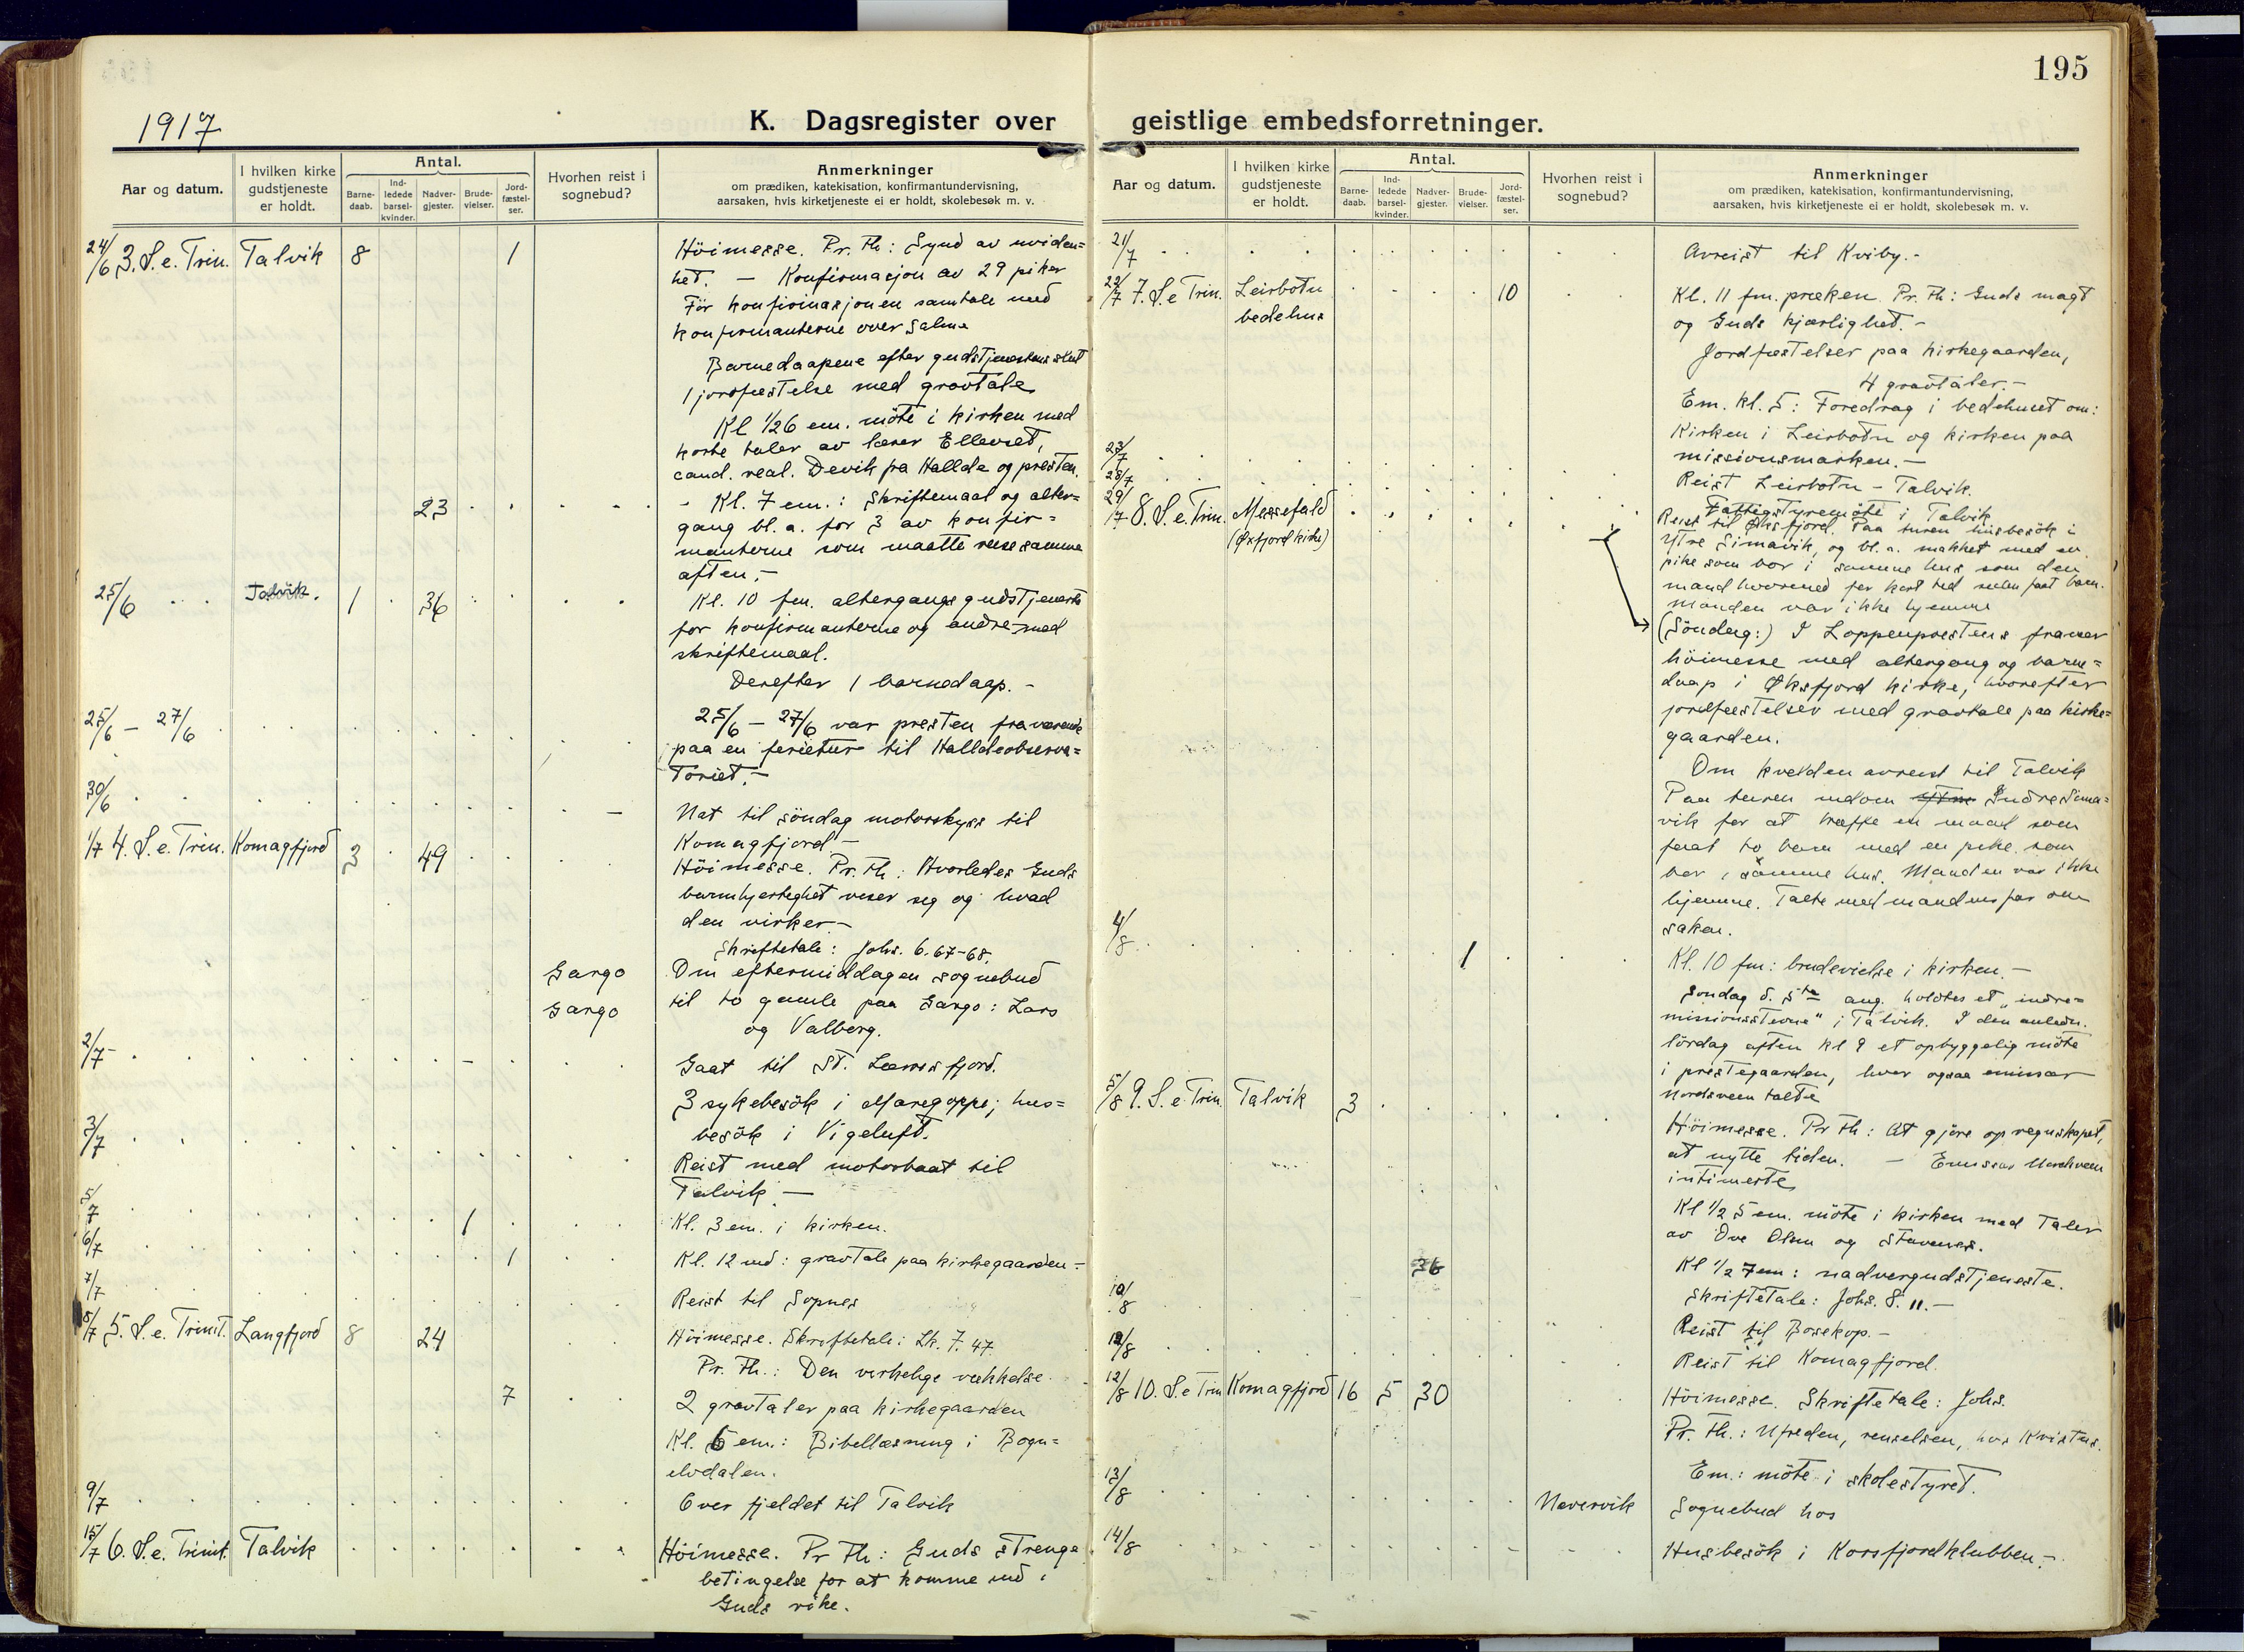 195
1917
K. Dagsregister over geistlige embedsforretninger.
Aar og datum.
I hvilken kirke gudstjeneste er holdt.
Antal.
Barne-daab.
Ind-ledede barsel-kvinder.
Nadver-gjester.
Brude-vielser.
Jord-fæstel-ser.
Hvorhen reist i sognebud?
Anmerkninger
om prædiken, katekisation, konfirmantundervisning,
aarsaken, hvis kirketjeneste ei er holdt, skolebesøk m. v.
24/6 3. S. e. Trin. Talvik 8 1 Höimesse. Pr. Th: Synd av uviden=
het. — Konfirmasjon av 29 piker
För konfirmasjonen samtale med
konfirmanterne over Salme
Barnedaapene efter gudstjenestens slut
1 jordfæstelse med gravtale
Kl 1/2 6 em. möte i kirken med
korte taler av lærer Ellevset,
cand. real. Devik fra Hallde og presten.
23 - Kl. 7 em.: Skriftemaal og alter=
gang bl. a. for 3 av konfir=
manterne som maatte reise samme
aften.-
25/6 Talvik. 1 36 Kl. 10 fm. altergangsgudstjeneste
for konfirmanterne og andre med
skriftemaal.
Derefter 1 barnedaap. -
25/6 - 27/6 25/6 - 27/6 var presten fraværende
paa en ferietur til Halddeobserva=
toriet.-
30/6 Nat til söndag motorskyss til
Komagfjord -
1/7 4. S. e. Trin. Komagfjord 3 49 Höimesse. Pr. Th.: Hvorledes Guds
barmhjertighet viser seg og hvad
den virker.-
Skriftetale: Johs. 6. 67-68.
Gargo Om eftermiddagen sognebud
Gargo til to gamle paa Gargo: Lars
og Valborg.
2/7 Gaat til St. Lærrisfjord.
3 sykebesök i Maregoppe; hus=
besök i Vigeluft.
3/7 Reist med motorbaat til
Talvik. —
5/7 1 Kl. 3 em. i kirken.
6/7 1 Kl. 12 md: gravtale paa kirkegaarden -
7/7 Reist til Sopnes
8/7 5. S. e. Trinit. Langfjord 8 24 Höimesse. Skriftetale: Lk. 7. 47
Pr. Th.: Den virkelige vækkelse.
7 2 gravtaler paa kirkegaarden
Kl. 6 em.: Bibellæsning i Bogn=
elvdalen.
9/7 Over fjeldet til Talvik
15/7 6. S. e. Trinit. Talvik Höimesse. Pr Th: Guds strenge
betingelse for at komme ind i
Guds rike.
Aar og datum.
I hvilken kirke gudstjeneste er holdt.
Antal.
Barne-daab.
Ind-ledede barsel-kvinder.
Nadver-gjester.
Brude-vielser.
Jord-fæstel-ser.
Hvorhen reist i sognebud?
Anmerkninger
om prædiken, katekisation, konfirmantundervisning,
aarsaken, hvis kirketjeneste ei er holdt, skolebesøk m. v.
21/7 Avreist til Kviby.-
22/7 7. S. e Trin. Leirbotn bedehus 10 Kl. 11 fm. præken. Pr. Th: Guds magt
og Guds kjærlighet.-
Jordfæstelser paa kirkegaarden,
4 gravtaler.-
Em. kl. 5: Foredrag i bedehuset om:
Kirken i Leirbotn og kirken paa
missionsmarken.—
23/7 Reist Leirbotn - Talvik.
28/7 Fattigstyremöte i Talvik
29/7 8. S. e. Trin. Messefald (Øxfjord kirke) Reist til Øksfjord. Paa turen husbesök i
Ytre Simavik, og bl. a. snakket med en
pike som bor i samme hus som den
mand hvormed for kort tid siden faat barn.
Manden var ikke hjemme
(Söndag:) I Loppenprestens fravær
höimesse med altergang og barne=
daap i Øksfjord kirke, hvorefter
jordfæstelser med gravtale paa kirke=
gaarden.
Om kvelden avreist til Talvik
Paa turen indom Ytre Indre Sima=
vik for at træffe en mand som
faat to barn med en pike som
bor i samme hus. Manden var ikke
hjemme. Talte med mandens far om
saken.
4/8 1 Kl. 10 fm: brudevielse i kirken.-
Söndag d. 5te aug. holdtes et „indre=
missionsstevne" i Talvik. I den anledn.
lördag aften kl 9 et opbyggelig möte
i prestegaarden, hvor ogsaa emissær
Nordsveen talte
5/8 9. S. e. Trin. Talvik 3 Höimesse. Pr Th: At gjöre op regnskapet,
at nytte tiden. - Emissær Nordsveen
intimerte
Kl 1/2 5 em. möte i kirken med taler
av Ove Olsen og Stavenes.
36 Kl 1/2 7 em: nadvergudstjeneste.
Skriftetale: Johs. 8. 11.-
10/8 Reist til Bosekop.-
Reist til Komagfjord.
12/8 10. S. e Trin Komagfjord 16 5 30 Höimesse. Skriftetale: Johs.
Pr. Th.: Ufreden, renselsen, hos Kristus.
Em.: möte i skolestyret.
13/8 Nevervik Sognebud hos
14/8 Husbesök i Korsfjordklubben.-